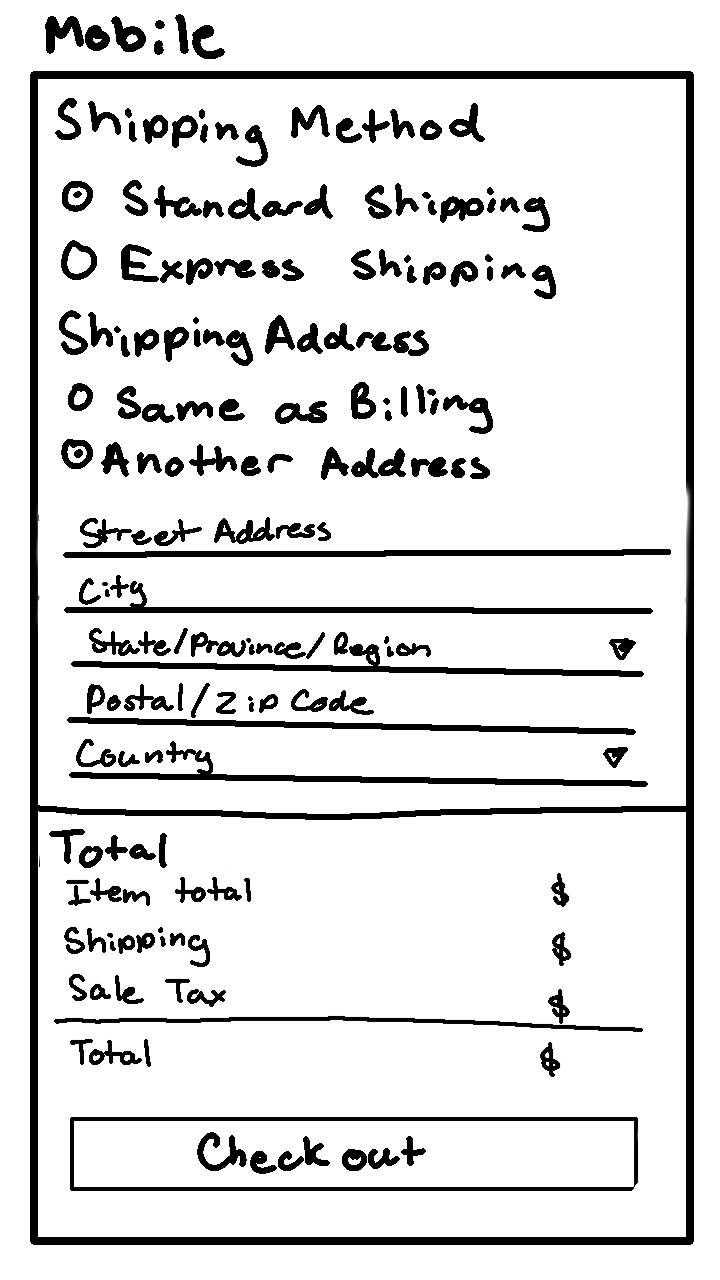 Mobile
Shipping Method
Standard Shipping
Express Shipping
Shipping Address
Same as Billing
Another Address
Street Address
City
State/Province/Region
Postal/Zip Code
Country
Total
Item total $
Shipping $
Sale Tax $
Total $
Check out